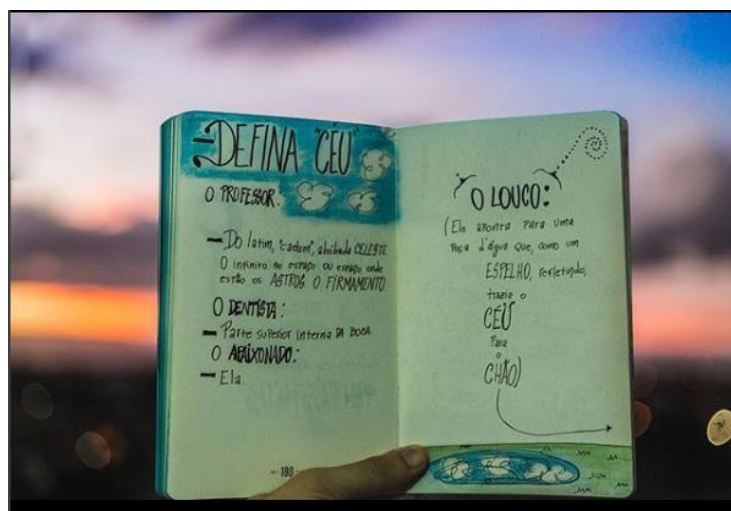 2- DEFINA "CÉU"
O PROFESSOR:
— Do latim, "caelum", abóbada CELESTE
O infinito no espaço ou espaço onde
estão os ASTROS O FIRMAMENTO
O DENTISTA:
— Parte superior interna DA BOCA
O APAIXONADO:
— Ela.
- 180 -
O LOUCO:
(Ele aponta para uma
Poça d'água que, como um
ESPELHO, refletindo,
trazia o
CÉU
Para
o
CHÃO)